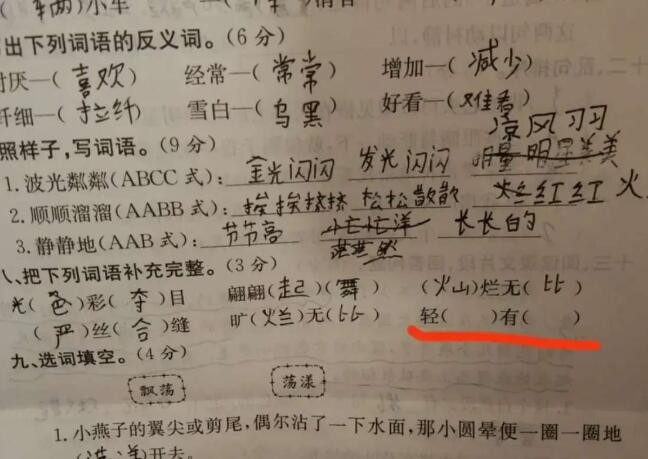 (车两)小车
出下列词语的反义词。(6分)
讨厌—(喜欢) 经常—(常常) 增加—(减少)
纤细—(拉纤) 雪白—(乌黑) 好看—(难看)
凉风习习
照样子,写词语。(9分)
1.波光粼粼(ABCC式): 金光闪闪 发光闪闪 明星美美
2.顺顺溜溜(AABB式): 挨挨挤挤 松松散散 火红红 火
3.静静地(AAB式): 节节高 茫茫然 长长的
八、把下列词语补充完整。(3分)
光(色)彩(夺)目 翩翩(起)(舞) (火山)烂无(比)
(严)丝(合)缝 旷(烂)无(比) 轻( )有( )
九、选词填空。(4分)
飘荡 荡漾
1.小燕子的翼尖或剪尾,偶尔沾了一下水面,那小圆晕便一圈一圈地
(荡漾)开去。